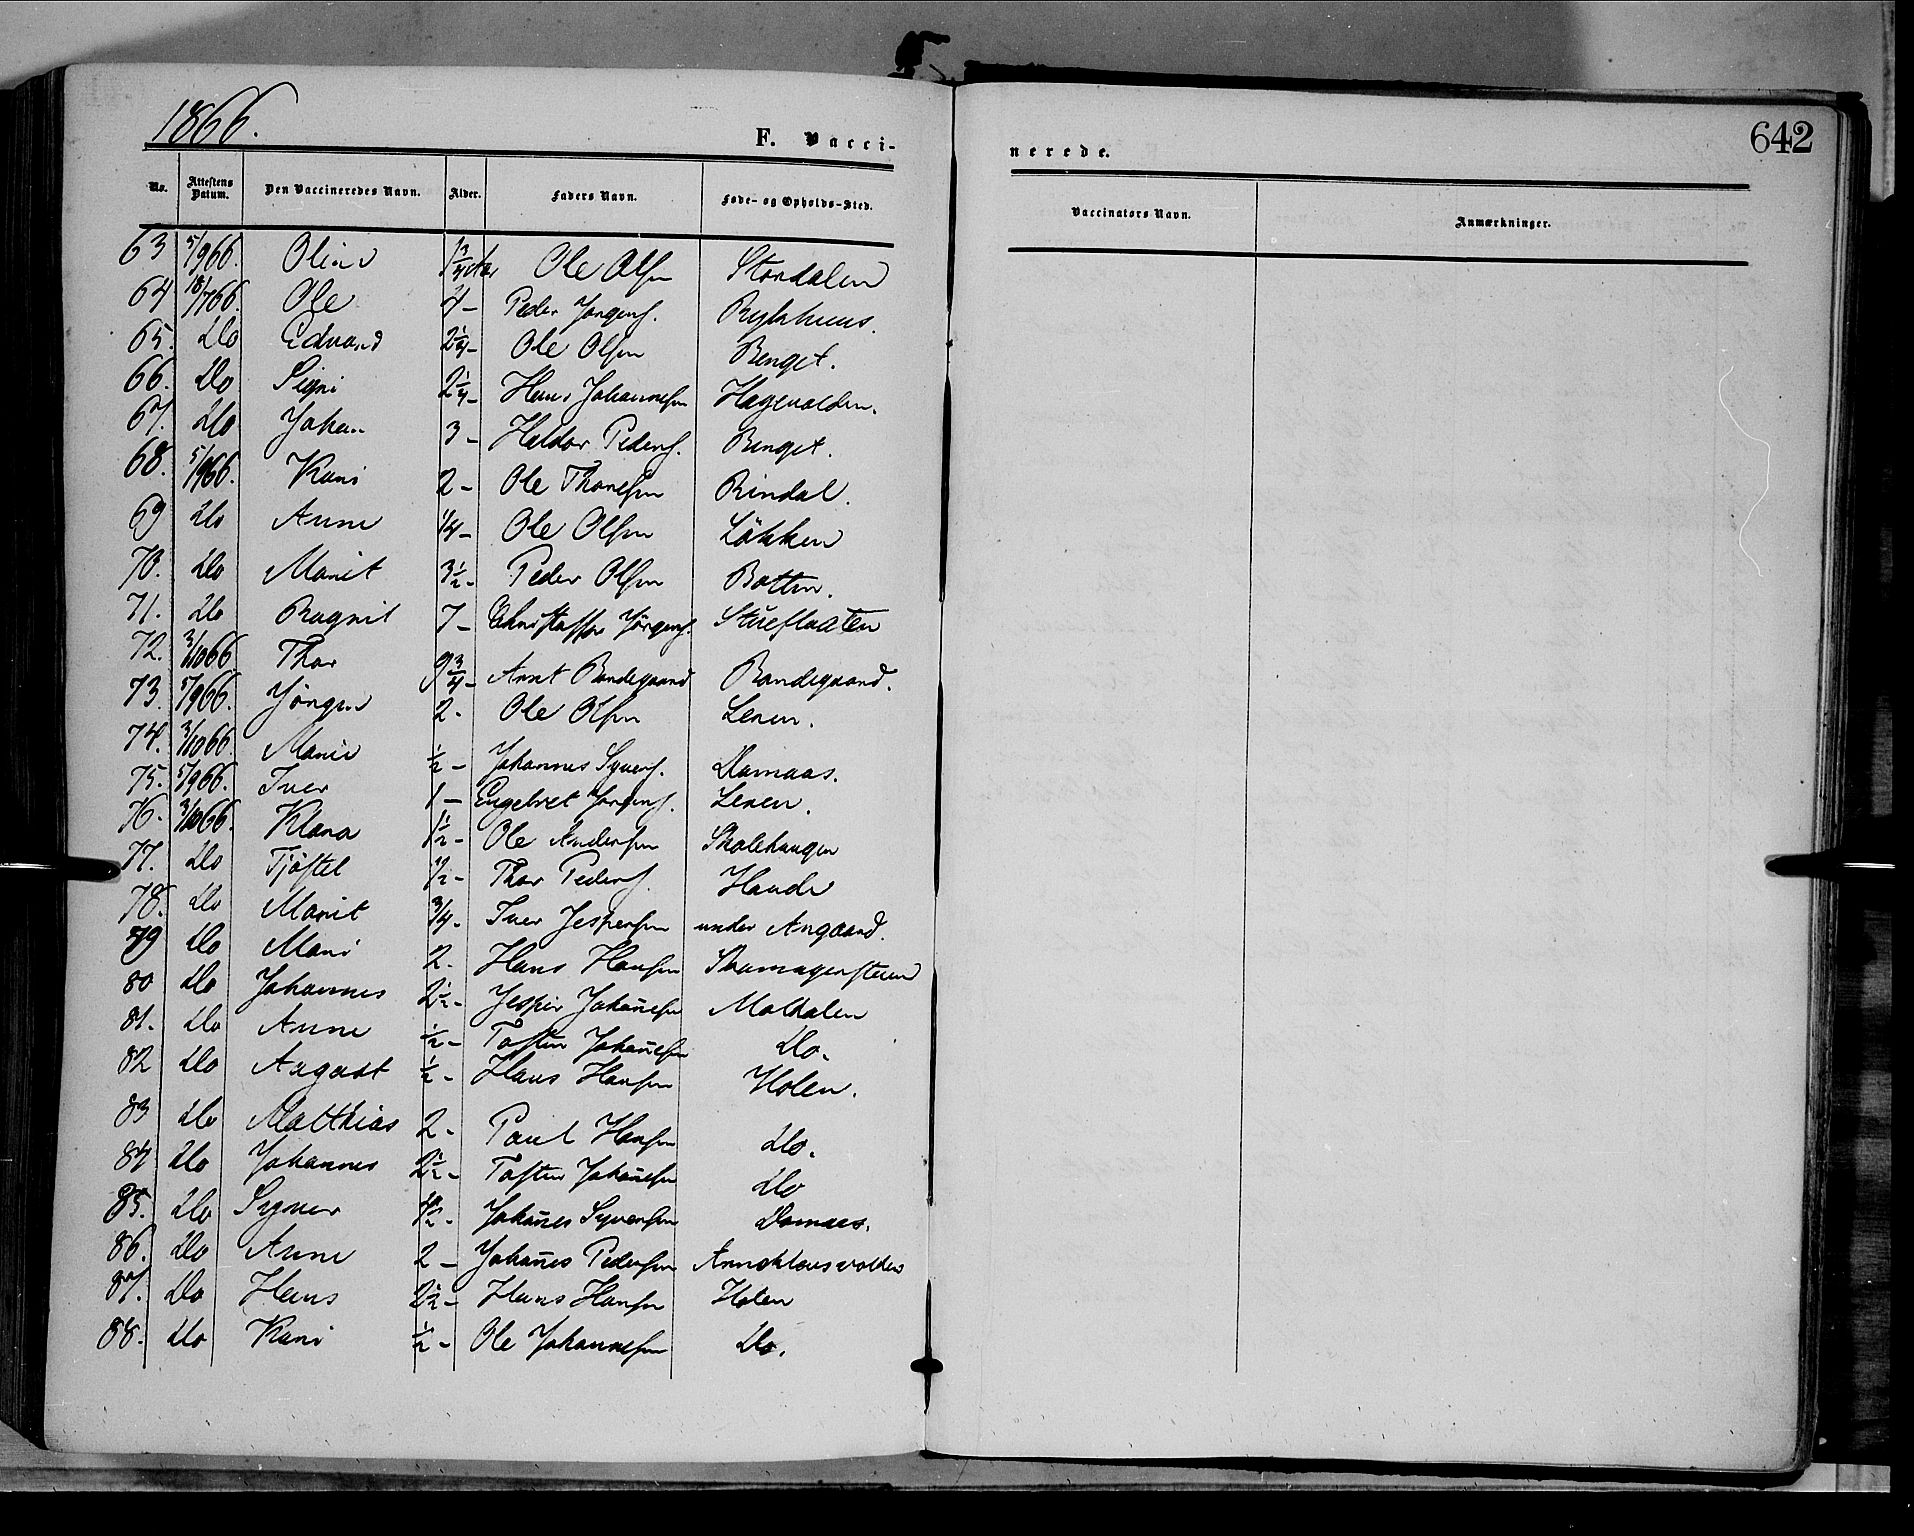 1866.
F. Vacci-
No. Attestens Datum. Den Vaccineredes Navn. Alder. Faders Navn. Føde- og Opholds-Sted.
63 5/9 66. Oline 1 3/4 Aar Ole Olsen Stordalen
64 18/7 66. Ole 4 - Peder Jørgens. Rykhuus.
65. Do Edvard 2 1/4 - Ole Olsen Renget.
66. Do Signi 2 1/4 - Hans Johannesen Hagevolden.
67. Do Johan 3 - Haldor Peders. Renget.
68. 5/9 66. Kari 2 - Ole Thoresen Rindal.
69 Do Anne 1/4 - Ole Olsen Løkken
70. Do Marit 3 1/2 - Peder Olsen Botten.
71. Do Ragnil 7 - Christoffer Jørgens. Stueflaaten
72. 3/10 66. Thor 9 3/4 - Arnt Bandegaard Bandegaard.
73. 5/9 66. Jörgen 2 - Ole Olsen Leren.
74. 3/10 66. Marie 1/2 - Johannes Syvers. Damaas.
75. 5/9 66. Iver 1 - Engebret Jørgens. Leren.
76. 3/10 66. Klara 1 1/2 - Ole Andersen Skolehaugen
77. Do Tjøstel 1/2 - Thor Peders. Haude
78. Do Marit 3/4 - Iver Jespersen under Angaard.
79 Do Mari 2 - Hans Hansen Skomagerstuen
80 Do Johannes 2 1/2 - Jesper Johan̄esen Moldalen
81. Do Anne 1/2 - Tosten Johan̄esen Do.
82 Do August 1/2 - Hans Hansen Holen.
83 Do Matthias 2 - Paul Hansen Do.
84 Do Johannes 2 1/2 - Tosten Johan̄esen Do
85. Do Syver 1/2 - Johan̄es Syversen Domaas.
86. Do Anne 2 - Johan̄es Pedersen Anneklevsvolden
87. Do Hans 2 1/2 - Hans Hansen Holen
88. Do Kari 1/2 - Ole Johannesen Do.
nerede.
642
Vaccinators Navn. Anmærkninger.